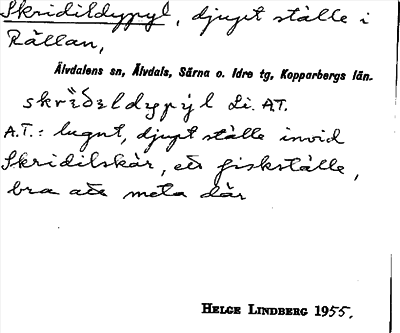 Skridildypyl, djupt ställe i
Rällan,
Älvdalens sn, Älvdals, Särna o. Idre tg, Kopparbergs län.
skrì̀ðıldypýl Li. A.T.
A.T.: lugnt, djupt ställe invid
Skridilskär, ett fiskställe,
bra att meta där
HELGE LINDBERG 1955.